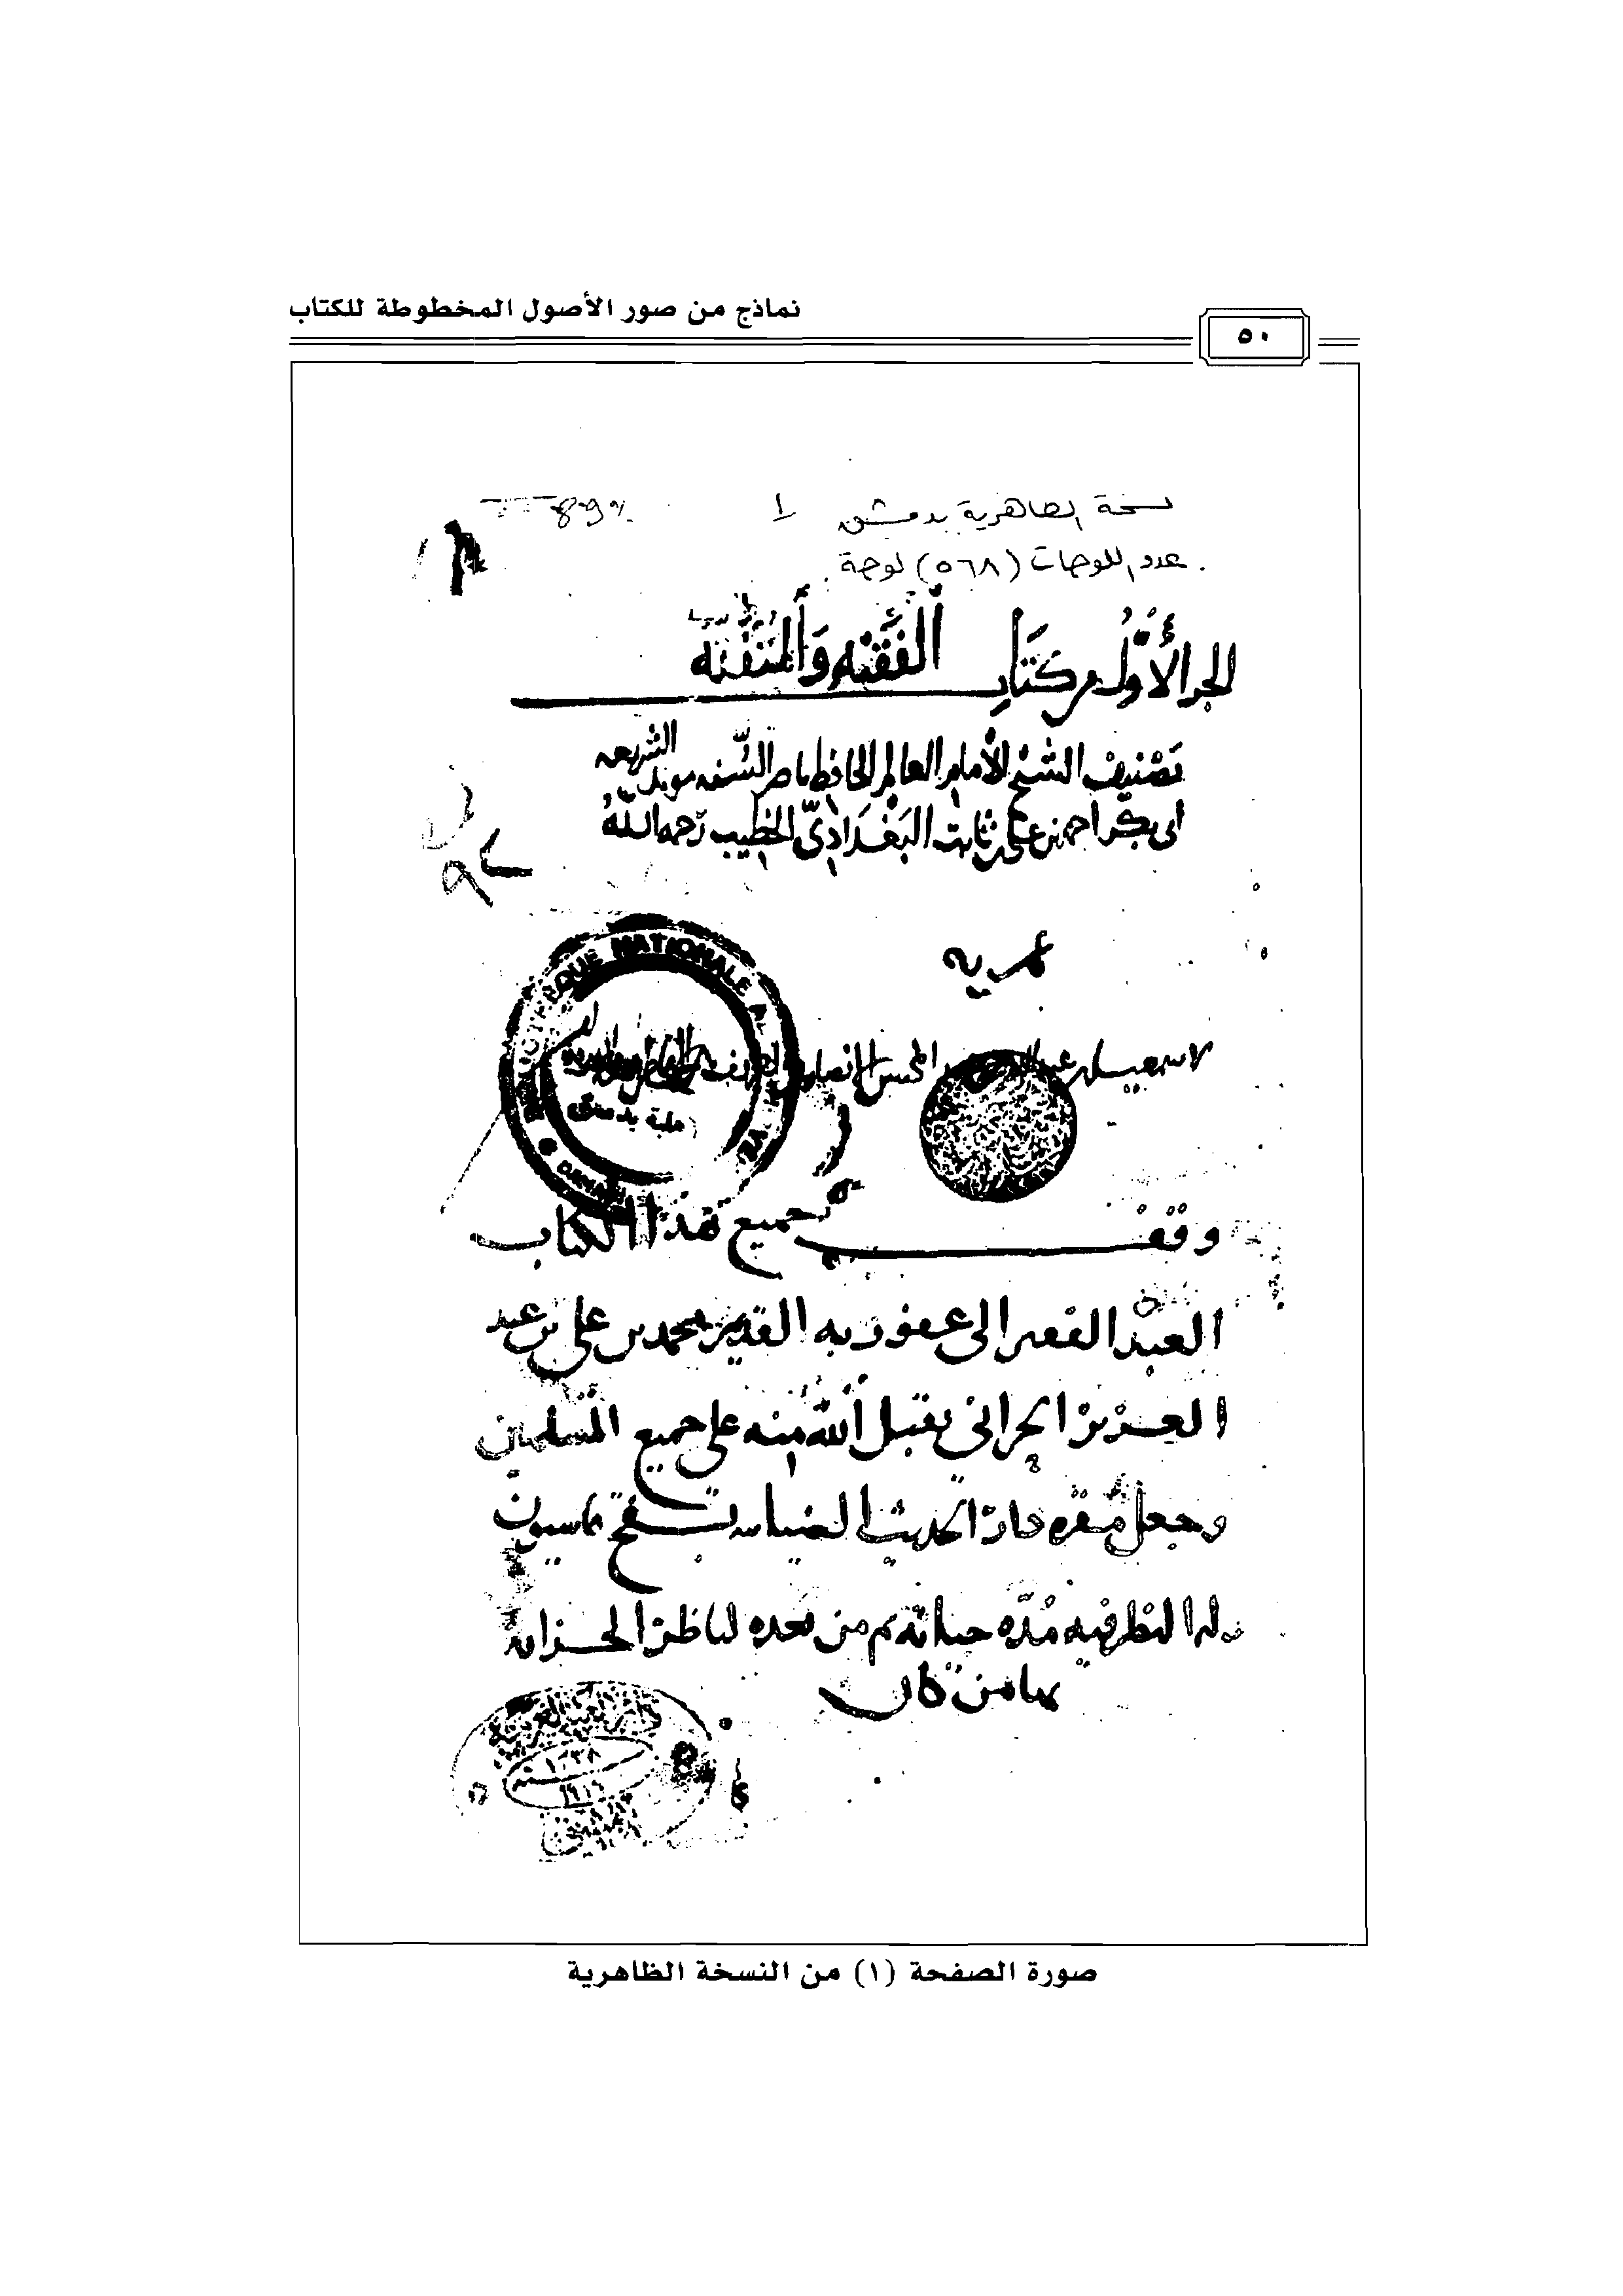 نماذج من صور الأصول المخطوطة للكتاب
٥٠
نسخة الظاهرية بدمشق
عدد اللوحات (٥٦٨) لوحة
الجز الأول من كتاب الفقيه والمتفقه
تصنيف الشيخ الامام العالم الحافظ ناصر السنه مويد الشريعه
ابى بكر احمد بن على بن ثابت البغدادي الخطيب رحمه الله
عمريه
وقف جميع هذا الكتاب
العبد الفقير الى عفو ربه القدير محمد بن على بن عبد
العزيز الحراني تقبل الله منه على جميع المسلمين
وجعل مقره دار الحديث الضيائيه بسفح قاسيون
له النظر فيه مدة حياته ثم من بعده لناظر الخزانه
بها من كان
صورة الصفحة (١) من النسخة الظاهرية